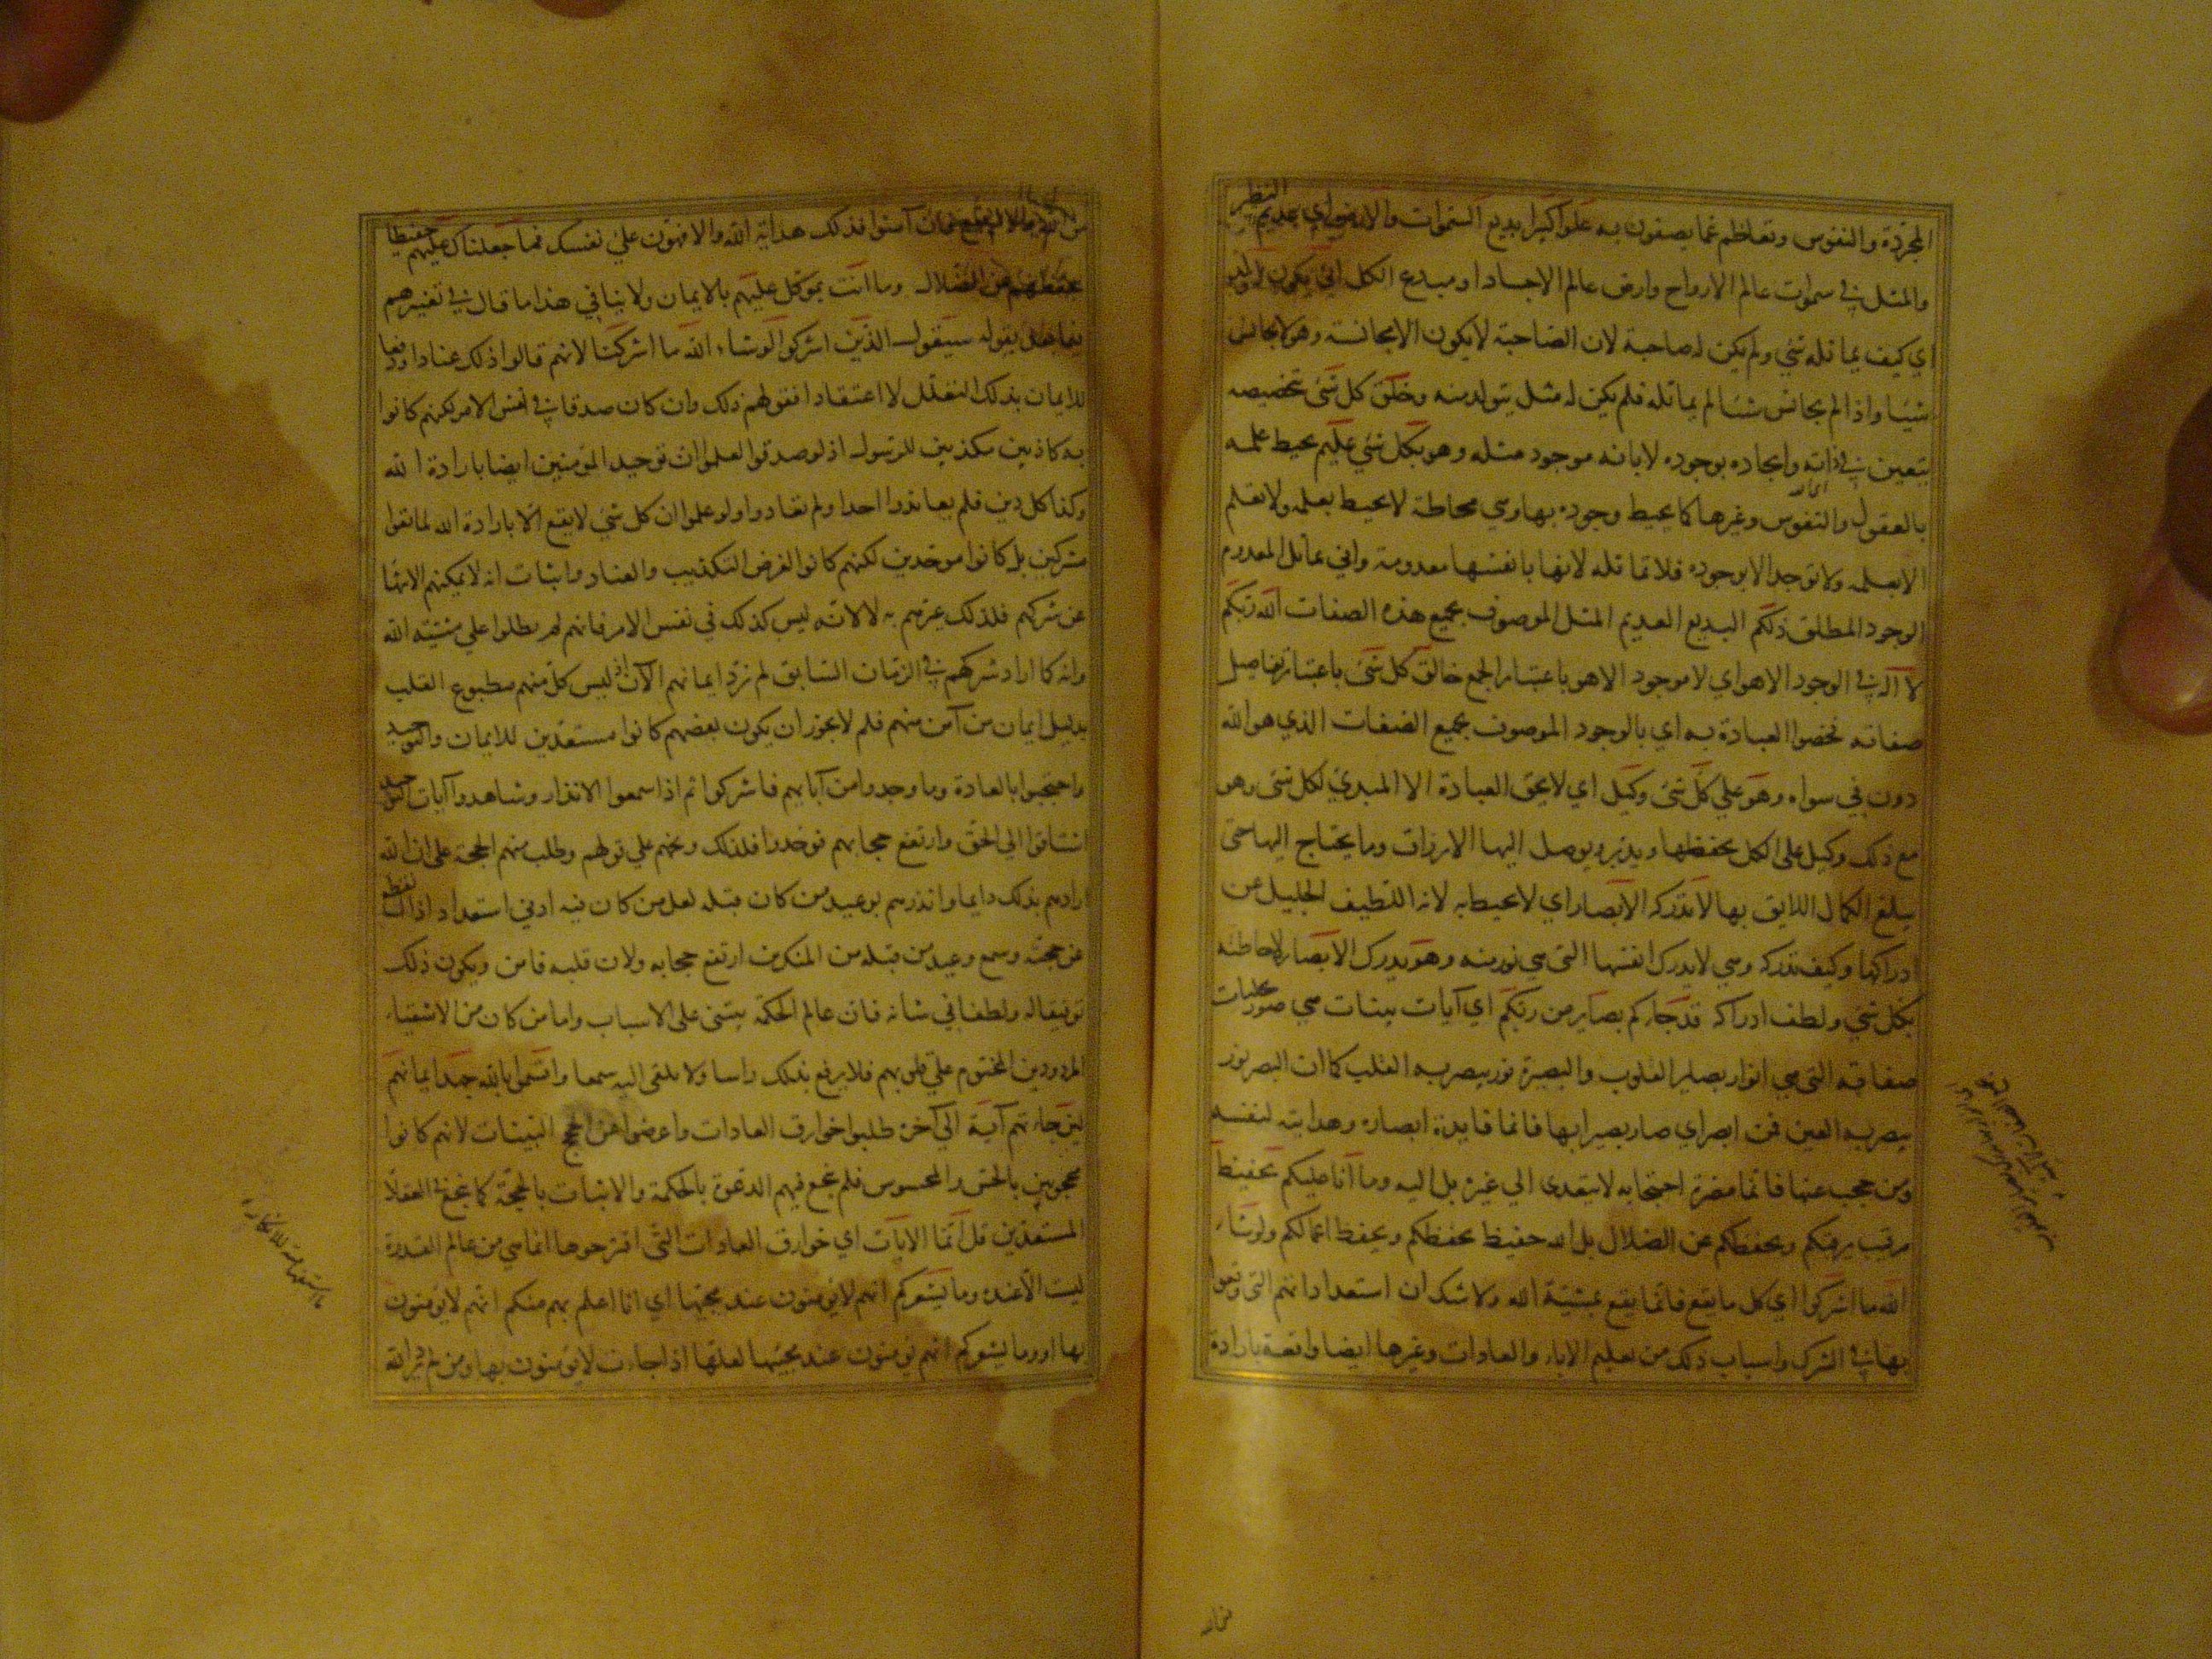 المجردة والنفوس وتعاظم عما يصفون به علوا كبيرا بديع السموات والارض اي عديم النظير
والمثل في سموات عالم الارواح وارض عالم الاجساد او مبدع الكل انى يكون له ولد
اي كيف يماثله شئ ولم يكن له صاحبة لان الصاحبة لا يكون الا مجانسة وهو لا يجانس
شيئا واذا لم يجانس شيئا لم يماثله فلم يكن له مثل يتولد منه وخلق كل شئ تخصيصه
بتعين في ذاته وايجاده بوجوده لا بانه موجود مثله وهو بكل شئ عليم محيط علمه
بالعقول والنفوس وغيرها كما يحيط وجوده بها وهي محاطة لا تحيط بعلمه ولا تعلم
الا بعلمه ولا توجد الا بوجوده فلا تماثله لانها بانفسها معدومة واني يماثل المعدوم
الوجود المطلق ذلكم البديع العديم المثل الموصوف بجميع هذه الصفات الله ربكم
لا اله في الوجود الا هو اي لا موجود الا هو باعتبار الجمع خالق كل شئ باعتبار تفاصيل
صفاته فخصوا العبادة به اي بالوجود الموصوف بجميع الصفات الذي هو الله
دون في سواه وهو على كل شئ وكيل اي لا يحق العبادة الا المبدئ لكل شئ وهو
مع ذلك وكيل على الكل يحفظها ويدبره يوصل اليها الارزاق وما يحتاج اليها حتى
يبلغ الكمال اللايق بها لا تدركه الابصار اي لا تحيط به لانه اللطيف الجليل عن
ادراكها وكيف تدركه وهي لا يدرك انفسها التي هي نور منه وهو يدرك الابصار لاحاطته
بكل شئ ولطف ادراكه قد جاءكم بصاير من ربكم اي آيات بينات هي صور تجليات
صفاته التي هي انوار بصاير القلوب والبصيرة نور يبصر به القلب كما ان البصر نور
يبصر به العين فمن ابصر اي صار بصيرا بها فانما فايدة ابصاره وهدايته لنفسه
ومن حجب عنها فانما مضرة احتجابه لا يتعدى الي غيره بل اليه وما انا عليكم بحفيظ
رقيب يرقبكم ويحفظكم عن الضلال بل الله حفيظ يحفظكم ويحفظ اعمالكم ولو شاء
الله ما اشركوا اي كل ما يقع فانما يقع بمشيئة الله ولا شك ان استعداداتهم التي وقعوا
بها في الشرك واسباب ذلك من تعليم الاباء والعادات وغيرها ايضا واقعة بارادة
آمنوا فذلك هداية الله والا فهون علي نفسك فما جعلناك عليهم حفيظا
تحفظهم عن الضلال وما انت بموكل عليهم بالايمان ولا ينافي هذا ما قال في تعييرهم
بقوله سيقول الذين اشركوا لو شاء الله ما اشركنا لانهم قالوا ذلك عنادا ودفعا
للايمان بذلك التعلل لا اعتقادا فقولهم ذلك وان كان صدقا في نفس الامر لكنهم كانوا
به كاذبين مكذبين للرسول اذ لو صدقوا لعلموا ان توحيد المؤمنين ايضا بارادة الله
وكذا كل دين فلم يعاندوا احدا ولم يعادوا ولو علموا ان كل شئ لا يقع الا بارادة الله لما بقوا
مشركين بل كانوا موحدين لكنهم كانوا لغرض التكذيب والعناد واثبات انه لا يمكنهم الانتهاء
عن شركهم فلذلك عيرهم به لا لانه ليس كذلك في نفس الامر فانهم لم يطلعوا علي مشيئة الله
وانه كما اراد شركهم في الزمان السابق لم يرد ايمانهم الآن اذ ليس كل منهم مطبوع القلب
بدليل ايمان من آمن منهم فلم لا يجوز ان يكون بعضهم كانوا مستعدين للايمان والتوحيد
واحتجبوا بالعادة وما وجدوا من آبايهم فاشركوا ثم اذا سمعوا الانذار وشاهدوا آيات التوحيد
اشتاقوا الي الحق وارتفع حجابهم فوحدوا فلذلك وبخهم علي قولهم وطلب منهم الحجة على ان الله
ارادهم بذلك دايما وانذرهم بوعيد من كان قبله لعل من كان فيه ادني استعداد اذا انقطع
عن حجته وسمع وعيد من قبله من المنكرين ارتفع حجابه ولان قلبه فآمن ويكون ذلك
توفيقا له ولطفا في شانه فان عالم الحكمة يبتنى على الاسباب واما من كان من الاشقياء
المردودين المختوم علي قلوبهم فلا يرفع بذلك راسا ولا يلقى اليه سمعا واقسموا بالله جهد ايمانهم
لئن جاءتهم آية الي آخره طلبوا خوارق العادات واعرضوا عن الحجج البينات لانهم كانوا
محجوبين بالحس والمحسوس فلم ينجع فيهم الدعوة بالحكمة والاثبات بالحجة كما ينجع في العقلاء
المستعدين قل انما الايات اي خوارق العادات التي اقترحوها انما هي من عالم القدرة
ليست الا عنده وما يشعركم انهم لا يؤمنون عند مجيئها اي انا اعلم بهم منكم انهم لا يؤمنون
بها او وما يشعركم انهم يؤمنون عند مجيئها لعلها اذا جاءت لا يؤمنون بها ومن لم يرد الله